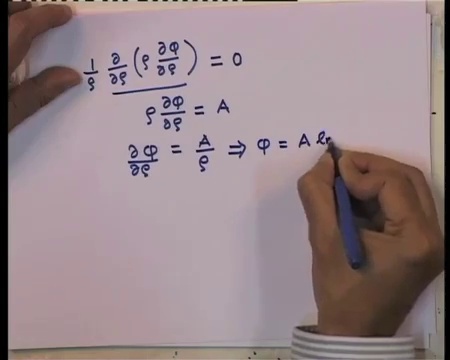 1/ρ ∂/∂ρ (ρ ∂φ/∂ρ) = 0
ρ ∂φ/∂ρ = A
∂φ/∂ρ = A/ρ ⇒ φ = A ln